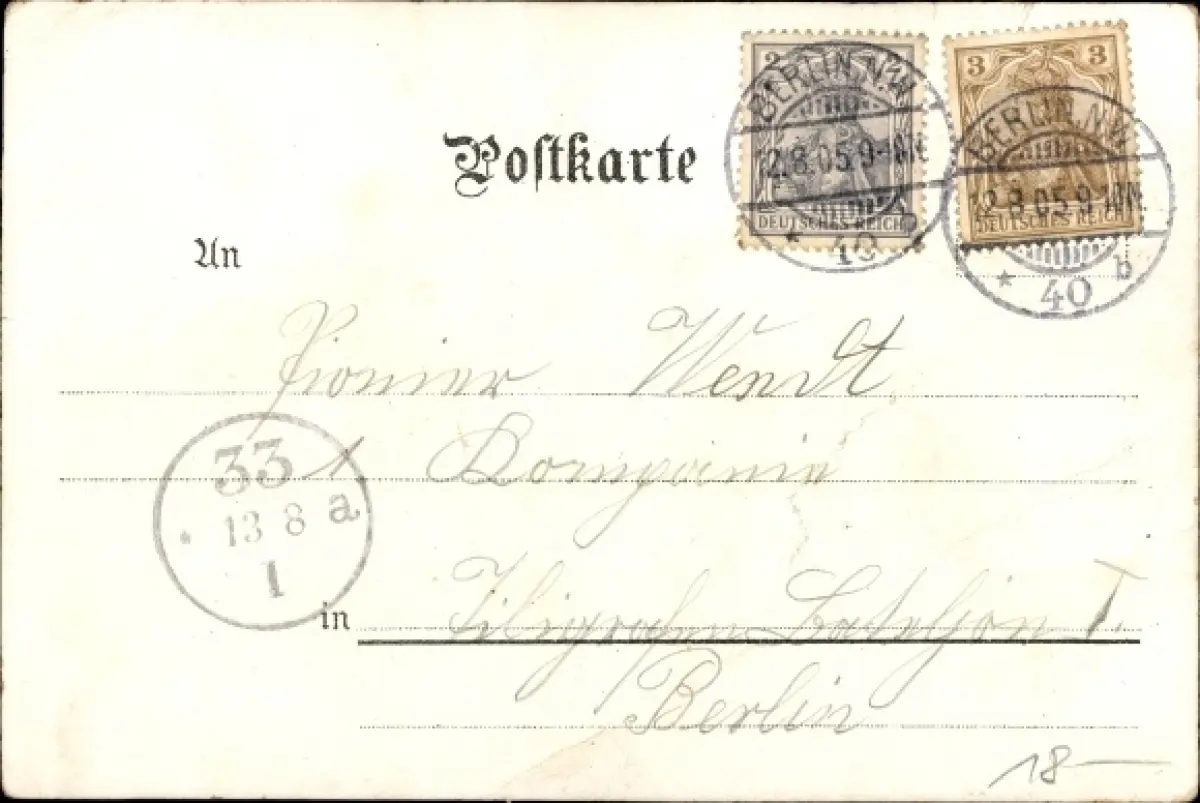 2
BERLIN, N.W.
12.8.05.9-10N.
DEUTSCHES REICH
* 40 b
3 3
BERLIN, N.W.
12.8.05.9-10N.
DEUTSCHES REICH
* 40 b
Postkarte
An
Pionier Wendt
1 Kompanie
33
* 13 8 a
1
in Telegrafen Bateljon I.
Berlin
18 —